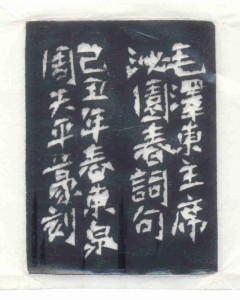 毛澤東主席
沁園春詞句
己丑年春東泉
周天平篆刻